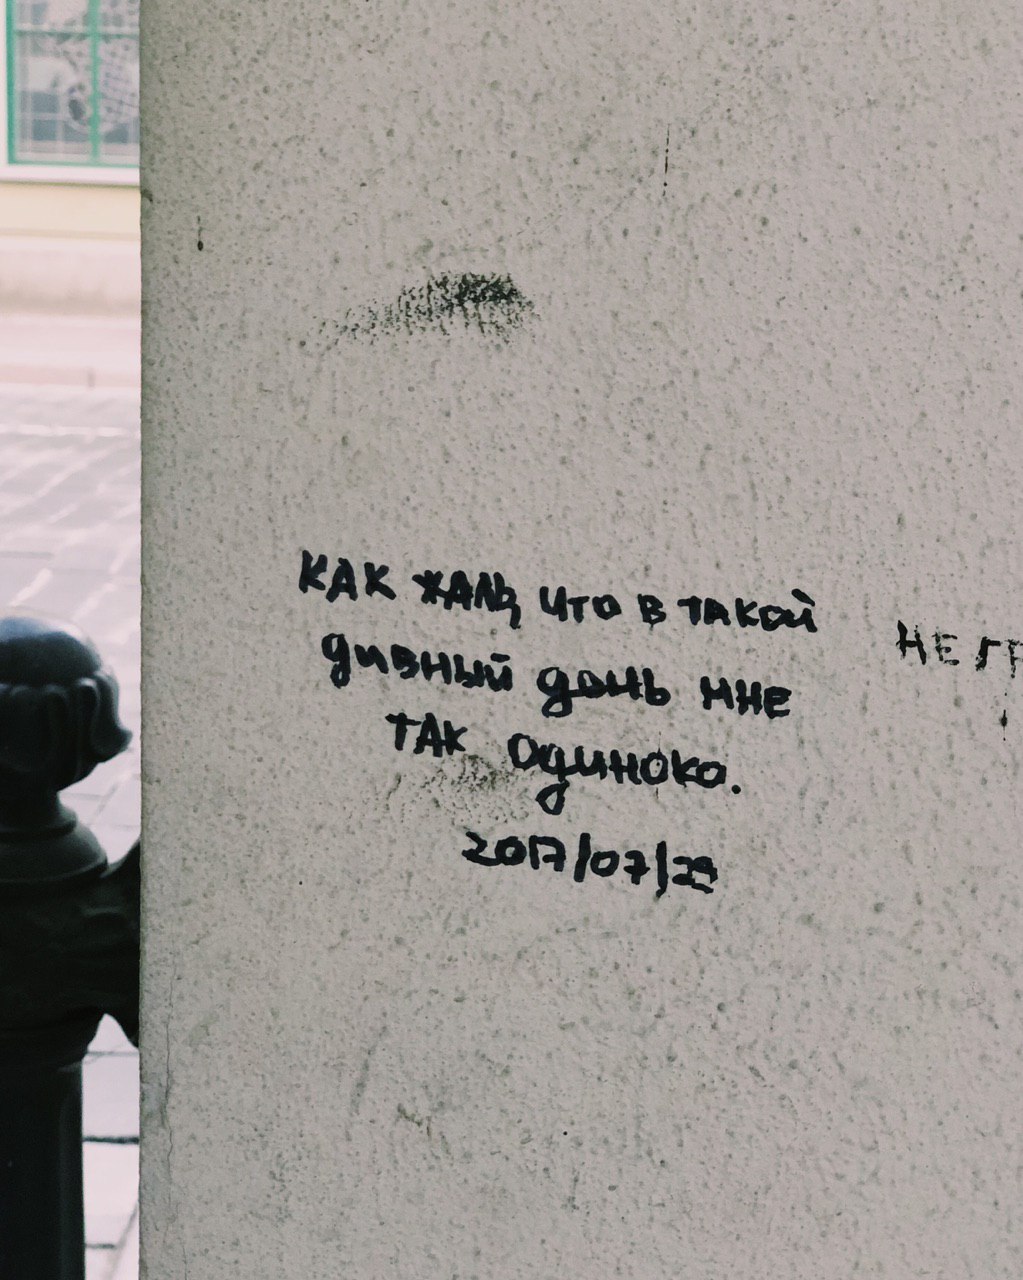 КАК ЖАЛЬ, ЧТО В ТАКОЙ
ДИВНЫЙ ДЕНЬ МНЕ
ТАК ОДИНОКО.
2017/07/29
НЕ